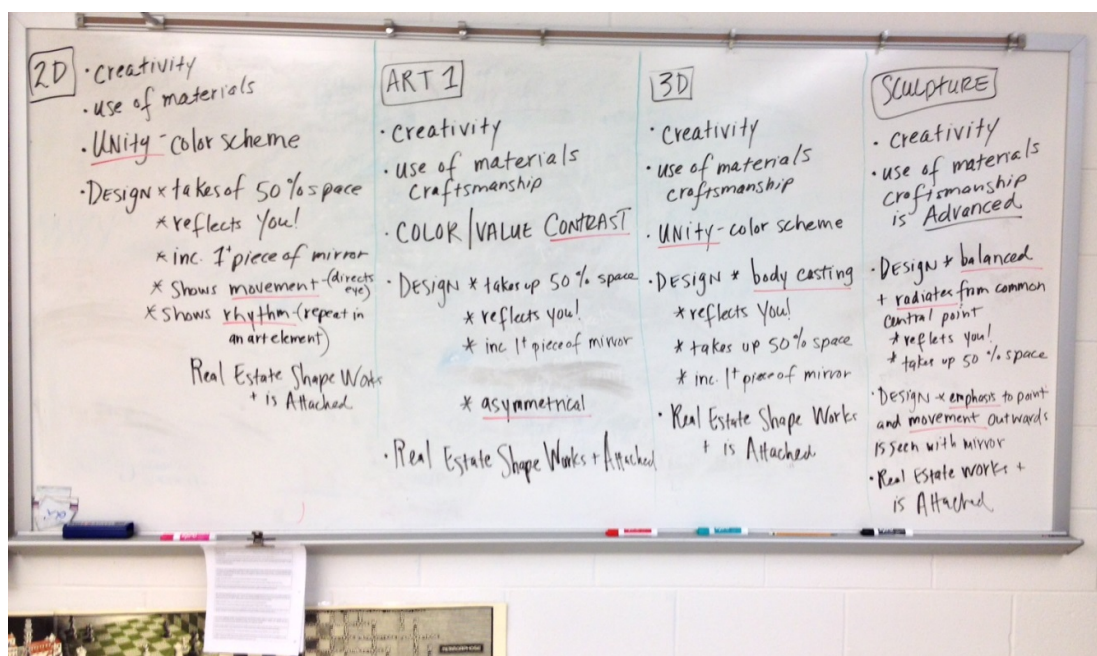 2D
• creativity
• use of materials
• UNity - color scheme
• DESIGN * takes of 50% space
* reflects you!
* inc. 1+ piece of mirror
* shows movement - (directs eye)
* shows rhythm - (repeat in
an art element)
Real Estate Shape Works
+ is Attached
ART 1
• creativity
• use of materials
craftsmanship
• COLOR/VALUE CONTRAST
• DESIGN * takes up 50% space
* reflects you!
* inc 1+ piece of mirror
* asymmetrical
• Real Estate Shape Works + Attached
3D
• creativity
• use of materials
craftsmanship
• UNity - color scheme
• DESIGN * body casting
* reflects you!
* takes up 50% space
* inc. 1+ piece of mirror
• Real Estate Shape Works
+ is Attached
SCULPTURE
• creativity
• use of materials
craftsmanship
is Advanced
• DESIGN * balanced
+ radiates from common
central point
* reflets you!
* takes up 50% space
• DESIGN * emphasis to point
and movement outwards
is seen with mirror
• Real Estate works +
is Attached